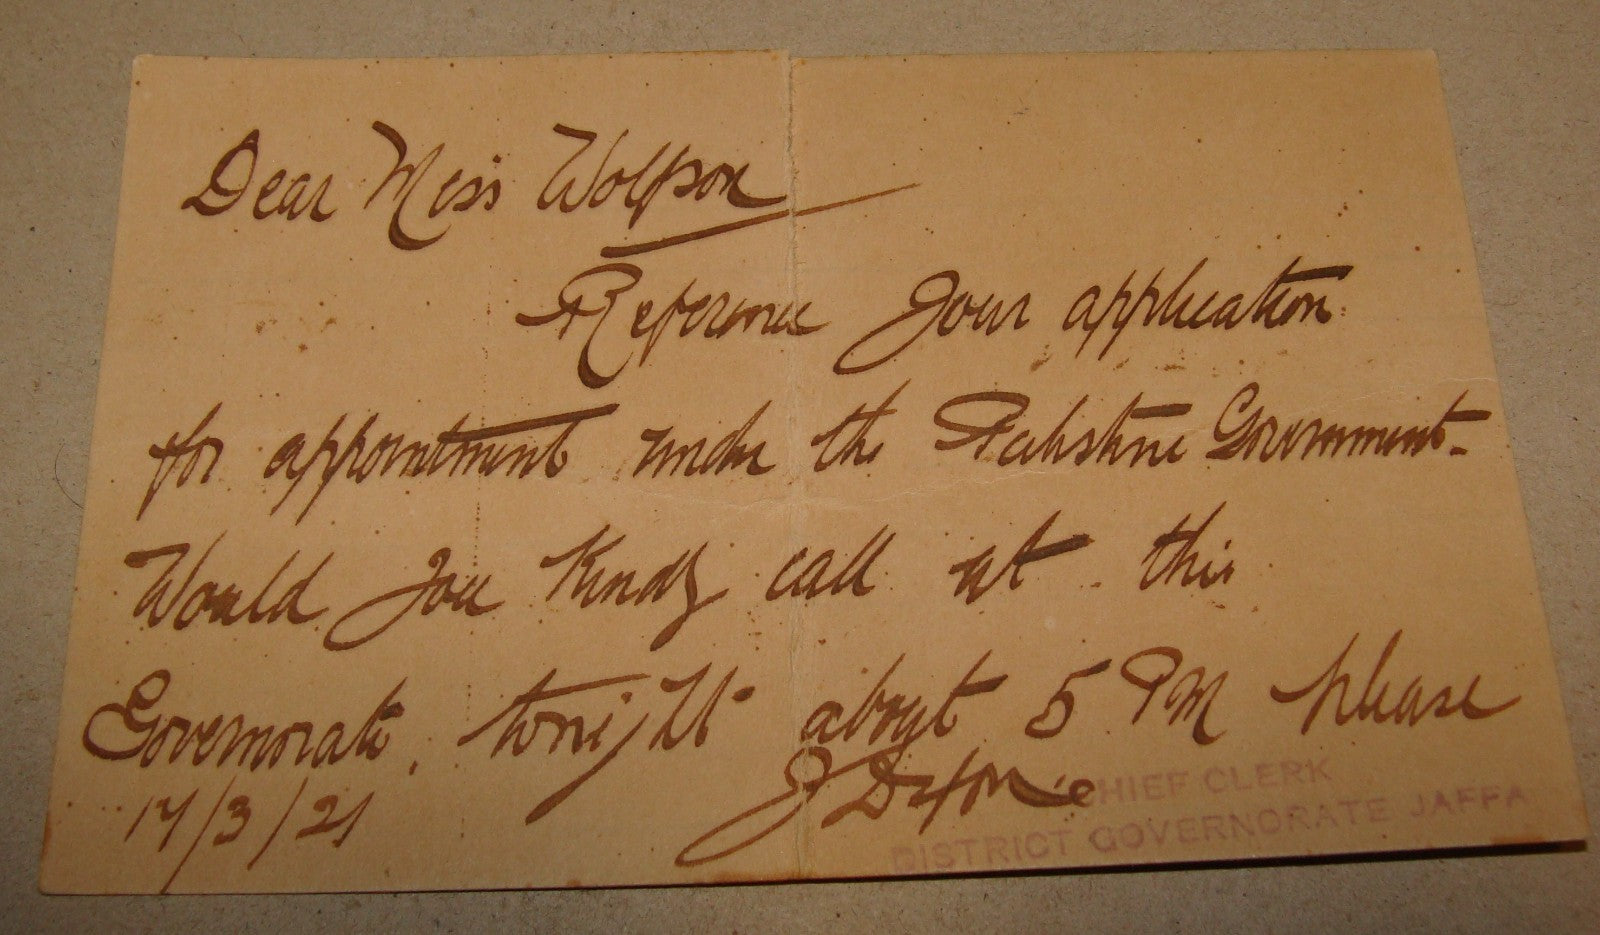 Dear Miss Wolfson
Reference your application
for appointment under the Palestine Government.
Would you kindly call at this
Governorate, tonight about 5 PM please
J
CHIEF CLERK
DISTRICT GOVERNORATE JAFFA
17/3/21